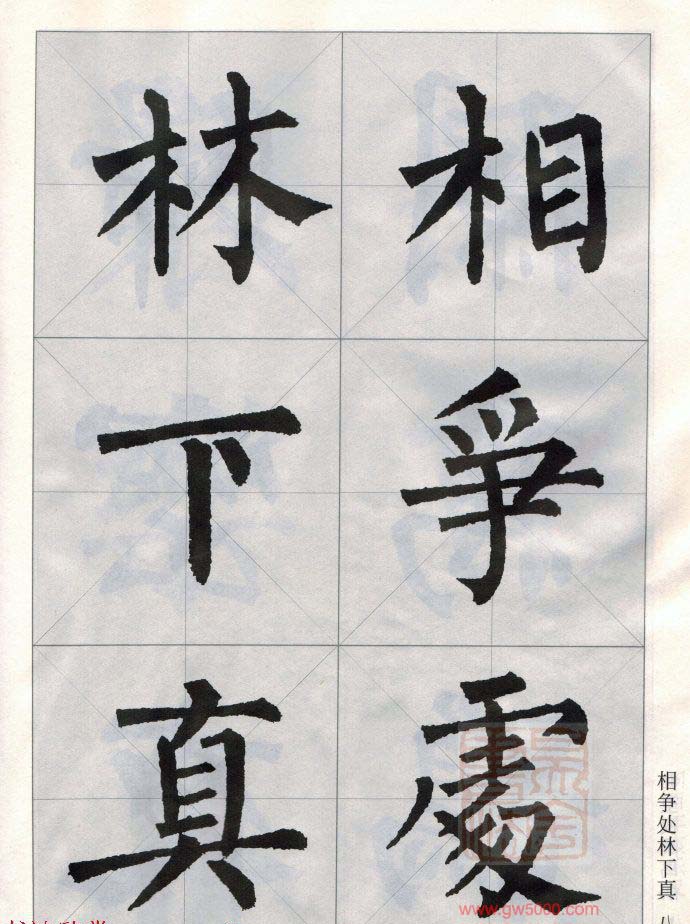 相爭處
林下真
相争处林下真
www.gw5000.com